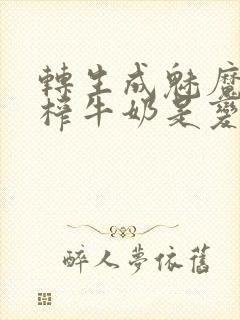 轉生成魅魔
榨牛奶是變
醉人夢依舊